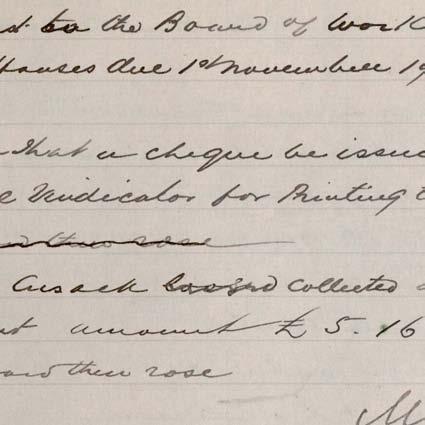 to the Board of Works
Houses due 1st November 19
that a cheque be issu
Vindicator for Printing
and then rose
Cusack collected
amount £ 5. 16
and then rose
M